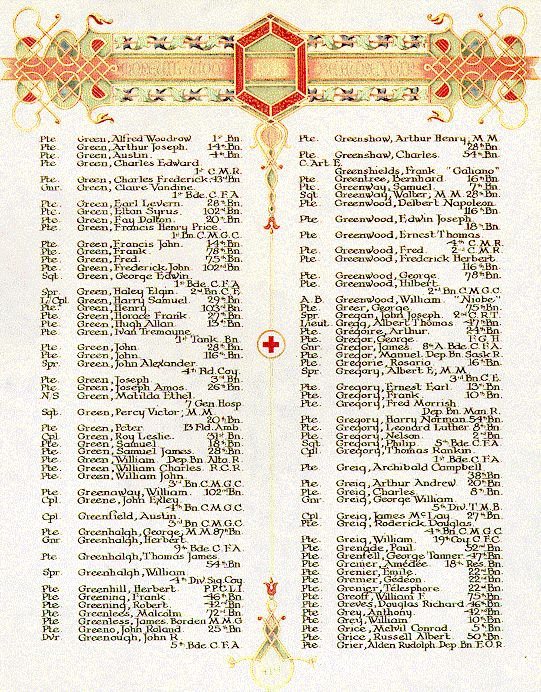 Pte. Green, Alfred Woodrow 1st Bn.
Pte. Green, Arthur Joseph. 14th Bn.
Pte. Green, Austin. 4th Bn.
Pte. Green, Charles Edward
1st C.M.R.
Pte. Green, Charles Frederick 43rd Bn.
Gnr. Green, Claire Vandine.
1st Bde. C.F.A.
Pte. Green, Earl Levern. 28th Bn.
Pte. Green, Elton Syrus. 102nd Bn.
Pte. Green, Fay Dalton. 20th Bn.
Pte. Green, Francis Henry Price.
1st Bn. C.M.G.C.
Pte. Green, Francis John. 14th Bn.
Pte. Green, Frank. 78th Bn.
Pte. Green, Fred. 75th Bn.
Pte. Green, Frederick John. 102nd Bn.
Sgt. Green, George Edwin.
1st Bde. C.F.A.
Spr. Green, Haley Elgin. 2nd Bn. C.E.
L/Cpl. Green, Harry Samuel. 29th Bn.
Pte. Green, Henry. 103rd Bn.
Pte. Green, Horace Frank. 27th Bn.
Pte. Green, Hugh Allan. 13th Bn.
Pte. Green, Ivan Tremayne.
1st Tank. Bn.
Pte. Green, John. 28th Bn.
Pte. Green, John. 116th Bn.
Spr. Green, John Alexander
4th Fld. Coy.
Pte. Green, Joseph. 3rd Bn.
Pte. Green, Joseph Amos. 26th Bn.
N/S Green, Matilda Ethel.
7 Gen. Hosp.
Sgt. Green, Percy Victor, M.M.
20th Bn.
Pte. Green, Peter 13 Fld. Amb.
Cpl. Green, Roy Leslie. 31st Bn.
Pte. Green, Samuel. 18th Bn.
Pte. Green, Samuel James. 28th Bn.
Pte. Green, William Dep. Bn. Alta. R.
Pte. Green, William Charles. R.C.R.
Pte. Green, William John.
3rd Bn. C.M.G.C.
Pte. Greenaway, William. 102nd Bn.
Cpl. Greene, John Exley.
4th Bn. C.M.G.C.
Cpl. Greenfield, Austin.
3rd Bn. C.M.G.C.
Pte. Greenhalgh, George, M.M. 87th Bn.
Gnr. Greenhalgh, Herbert.
9th Bde. C.F.A.
Pte. Greenhalgh, Thomas James.
54th Bn.
Spr. Greenhalgh, William
4th Div. Sig. Coy.
Pte. Greenhill, Herbert P.P.C.L.I.
Pte. Greening, Frank 46th Bn.
Pte. Greening, Robert 42nd Bn.
Pte. Greenless, Malcolm 72nd Bn.
Pte. Greenless, James Borden M.M.G.
Pte. Greeno, John Roland. 25th Bn.
Dvr. Greenough, John R
5th Bde. C.F.A.
Pte. Greenshaw, Arthur Henry, M.M.
28th Bn.
Pte. Greenshaw, Charles. 54th Bn.
C. Art. E.
Greenshields, Frank "Galiano"
Pte. Greentree, Bernhard. 16th Bn.
Pte. Greenway, Samuel. 7th Bn.
Sgt. Greenway, Walter, M.M. 28th Bn.
Pte. Greenwood, Delbert Napoleon.
116th Bn.
Pte. Greenwood, Edwin Joseph.
18th Bn.
Pte. Greenwood, Ernest Thomas.
4th C.M.R.
Pte. Greenwood, Fred. 2nd C.M.R.
Pte. Greenwood, Frederick Herbert.
116th Bn.
Pte. Greenwood, George. 78th Bn.
Pte. Greenwood, Hilbert.
2nd Bn. C.M.G.C.
A.B. Greenwood, William "Niobe"
Pte. Greer, George. 75th Bn.
Spr. Gregan, John Joseph. 2nd C.R.T.
Lieut. Gregg, Albert Thomas 47th Bn.
Pte. Gregoire, Arthur. 24th Bn.
Pte. Gregor, George. F.G.H.
Gnr. Gregor, James. 8th A. Bde. C.F.A.
Pte. Gregor, Manuel. Dep. Bn. Sask. R.
Pte. Gregorie, Rosario 16th Bn.
Spr. Gregory, Albert E, M.M.
3rd Bn. C.E.
Pte. Gregory, Ernest Earl. 13th Bn.
Pte. Gregory, Frank. 10th Bn.
Pte. Gregory, Fred Morrish.
Dep. Bn. Man. R.
Pte. Gregory, Harry Norman. 54th Bn.
Pte. Gregory, Leonard Luther 8th Bn.
Pte. Gregory, Nelson 2nd Bn.
Sgt. Gregory, Philip 5th Bde. C.F.A.
Cpl. Gregory, Thomas Rankin.
1st Bde. C.F.A.
Pte. Greig, Archibald Campbell
38th Bn.
Pte. Greig, Arthur Andrew 20th Bn.
Pte. Greig, Charles 8th Bn.
Gnr. Greig, George William
5th Div. T.M.B.
Cpl. Greig, James McLay 27th Bn.
Pte. Greig, Roderick Douglas.
4th Bn. C.M.G.C.
Pte. Greig, William 19th Coy. C.F.C.
Pte. Grenade, Paul 52nd Bn.
Pte. Grenfell, George Tanner 47th Bn.
Pte. Grenier, Amédée 18th Res. Bn.
Pte. Grenier, Emile. 22nd Bn.
Pte. Grenier, Gédéon 22nd Bn.
Pte. Grenier, Télesphore 22nd Bn.
Pte. Greoff, William F. 75th Bn.
Pte. Greves, Douglas Richard 46th Bn.
Pte. Grey, Anthony. 42nd Bn.
Pte. Grey, William 10th Bn.
Pte. Grice, Melvil Conrad 5th Bn.
Pte. Grice, Russell Albert. 50th Bn.
Pte. Grier, Alden Rudolph Dep. Bn. E.O.R.